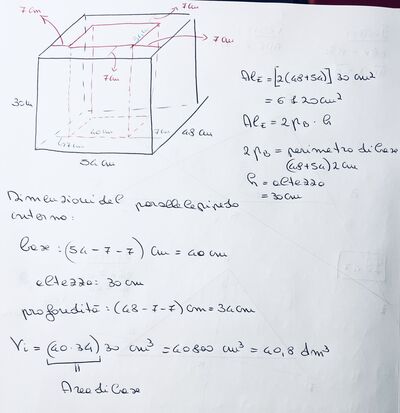 7cm
7cm
7cm
7cm
30cm
40cm
48 cm
54 cm
Al_E = [2(48+54)] 30 cm²
= 6120 cm²
Al_E = 2p_B · h
2p_B = perimetro di base
(48+54) 2 cm
h = altezza
= 30 cm
Dimensioni del parallelepipedo
interno:
base: (54-7-7) cm = 40 cm
altezza: 30 cm
profondità: (48-7-7) cm = 34 cm
Vi = (40·34) 30 cm³ = 40800 cm³ = 40,8 dm³
=
Area di base